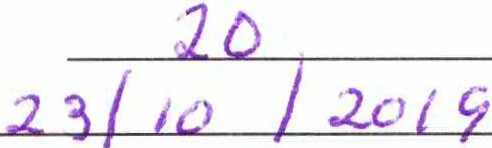 20
23/10/2019